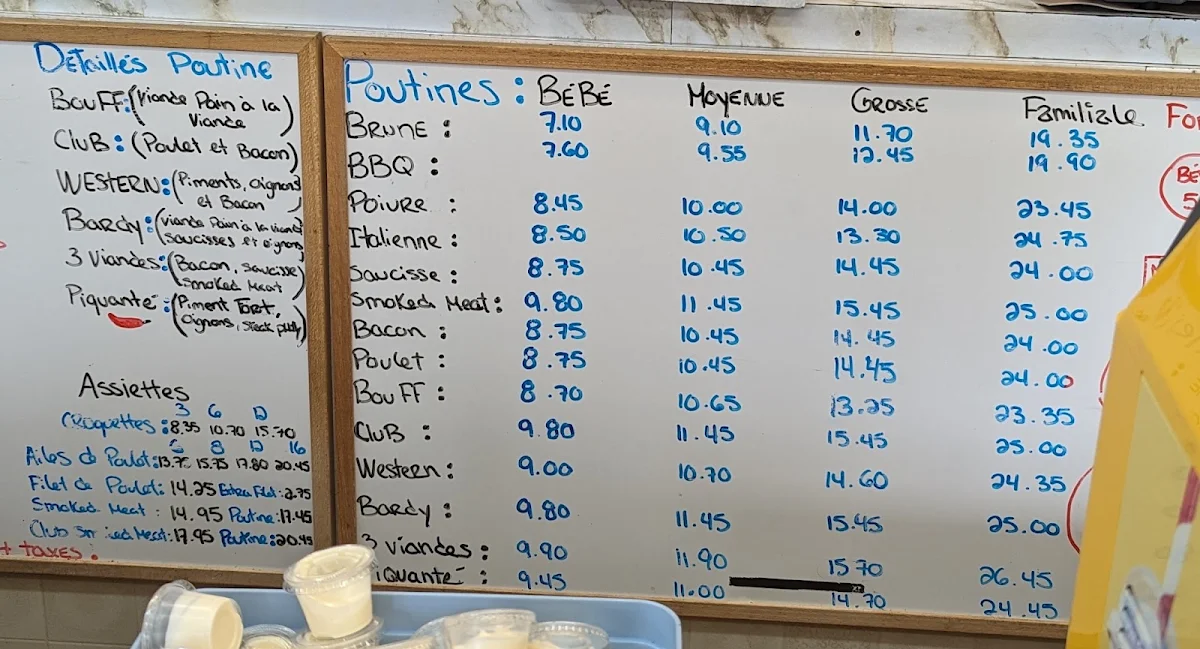 Détaillés Poutine
Bouff: (Viande Pain à la
Viande)
Club: (Poulet et Bacon)
WESTERN: (Piments, oignons
et Bacon)
Bardy: (Viande Pain à la viande
saucisses et oignons)
3 Viandes: (Bacon, saucisse
smoked Meat)
Piquante: (Piment Fort,
oignons,
Assiettes
3 6 12
Croquettes: 8.35 10.70 15.70
8 12 16
Ailes de Poulet: 15.75 17.80 20.45
Filet de Poulet: 14.25 Extra Filet: 2.75
Smoked Meat: 14.95 Poutine: 17.45
Club Meat: 17.95 Poutine: 20.45
+ TAXES:
Poutines: BÉBÉ MOYENNE GROSSE Familiale
BRUNE: 7.10 9.10 11.70 19.35
BBQ: 7.60 9.55 12.45 19.90
Poivre: 8.45 10.00 14.00 23.45
Italienne: 8.50 10.50 13.30 24.75
Saucisse: 8.75 10.45 14.45 24.00
Smoked Meat: 9.80 11.45 15.45 25.00
Bacon: 8.75 10.45 14.45 24.00
Poulet: 8.75 10.45 14.45 24.00
Bouff: 8.70 10.65 13.25 23.35
Club: 9.80 11.45 15.45 25.00
Western: 9.00 10.70 14.60 24.35
Bardy: 9.80 11.45 15.45 25.00
3 viandes: 9.90 11.90 15.70 26.45
iquante: 9.45 11.00 14.70 24.45